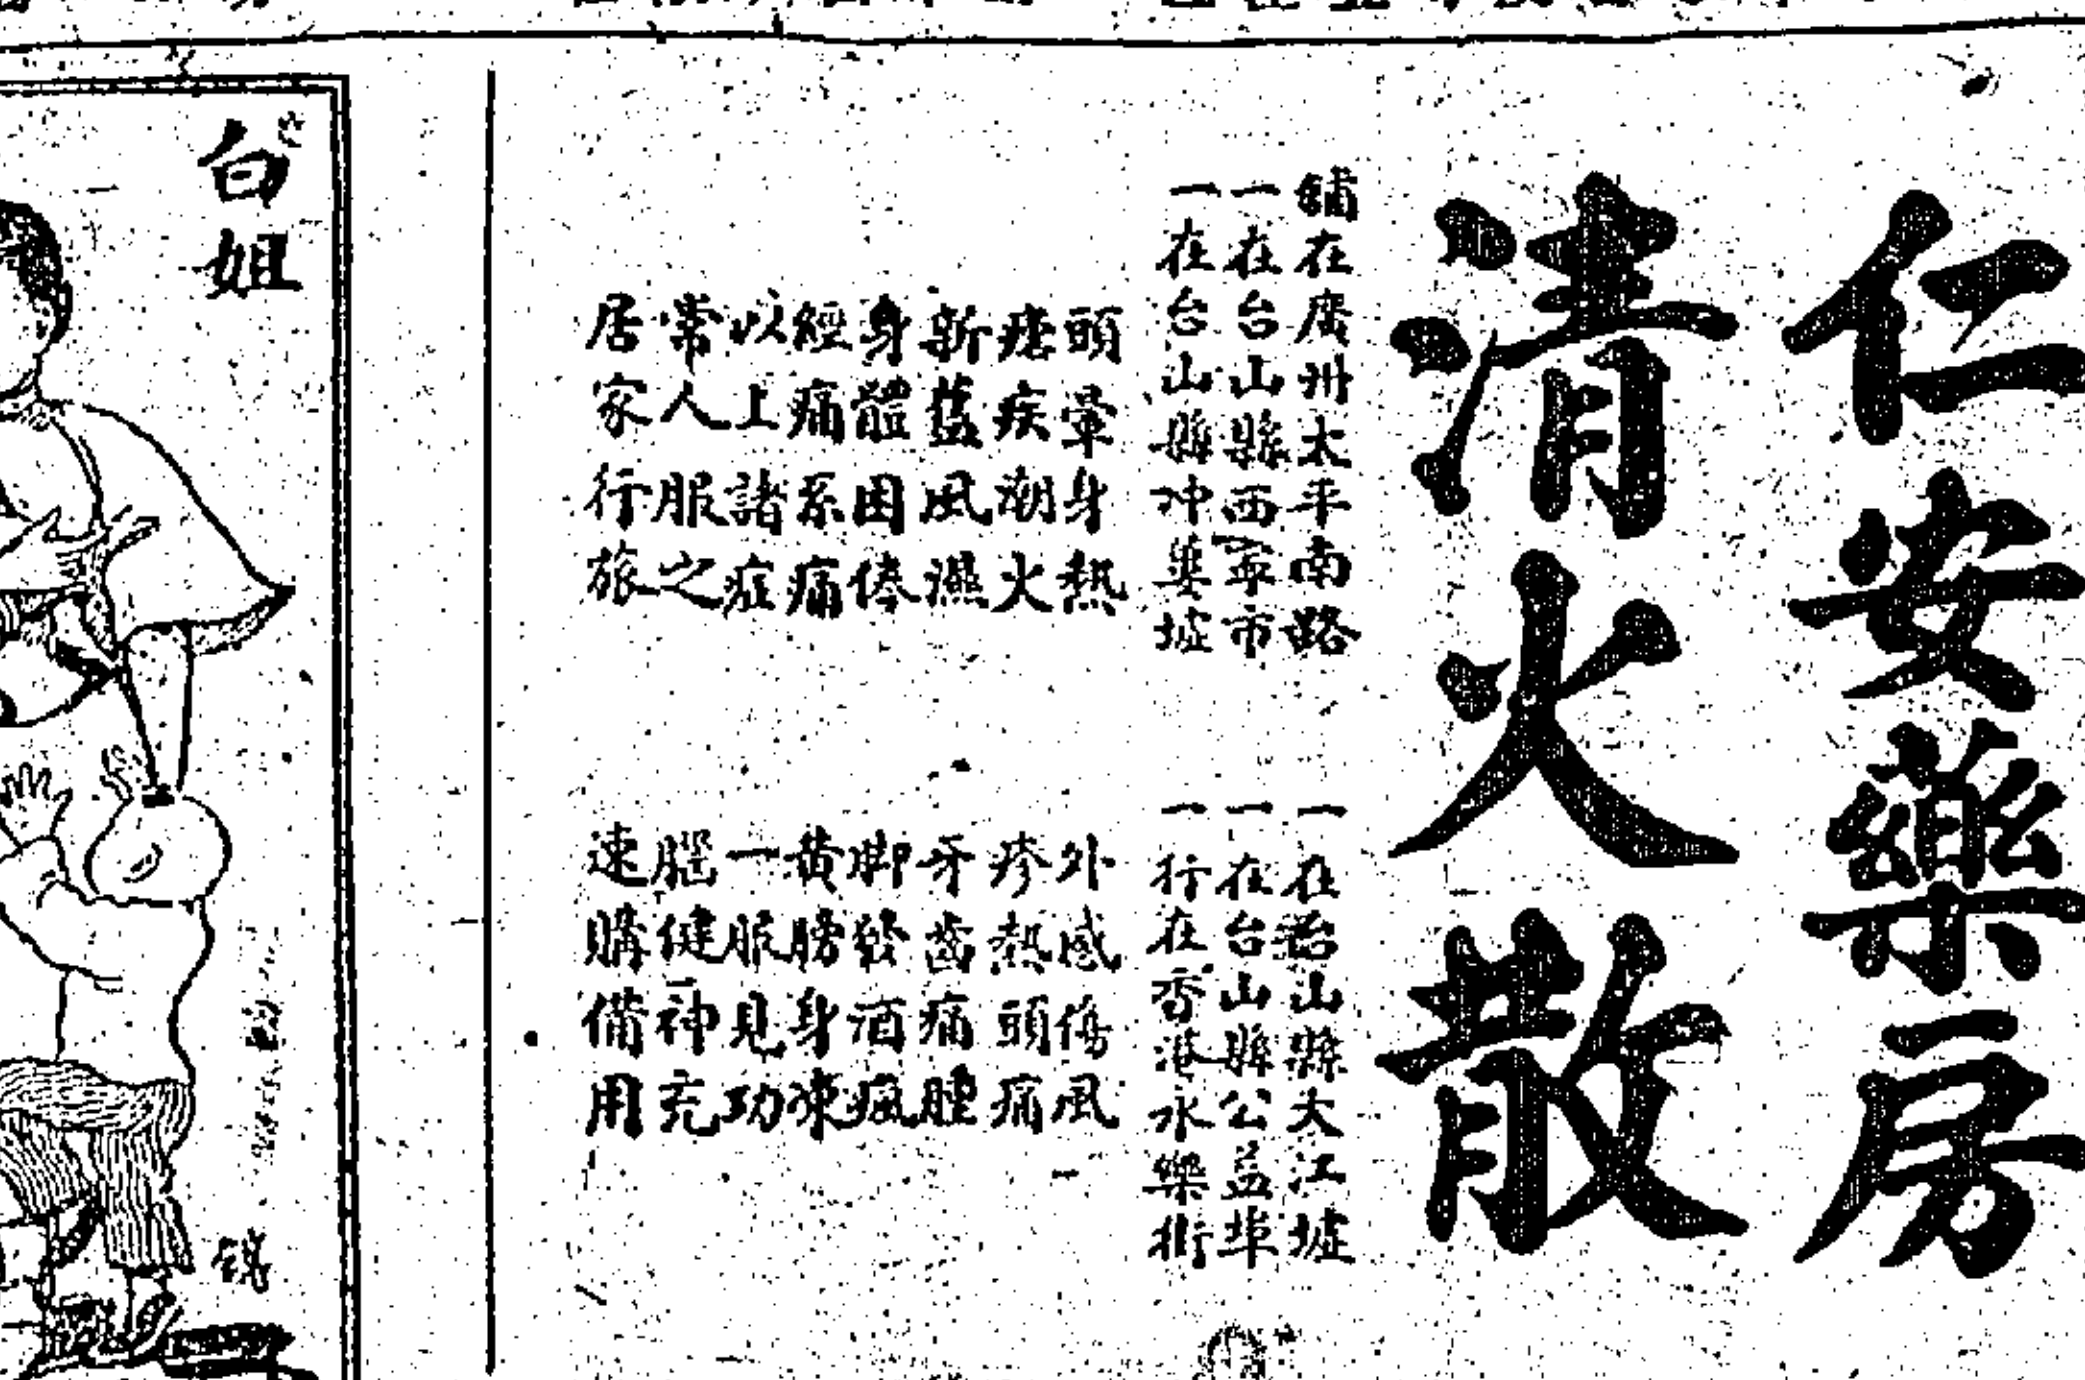 仁安藥房
清火散
舖在廣州太平南路
一在台山縣西寧市
一在台山縣冲蔞墟
一在台山縣大江墟
一在台山縣公益埠
一行在香港永樂街
頭暈身熱
瘧疾潮火
新舊風濕
身體困倦
經痛系痛
以上諸症
常人服之
居家行旅
外感傷風
疹熱頭痛
牙齒痛腫
脚發酒瘋
黃膀身凍
一服見功
腦健神充
速購備用
白姐